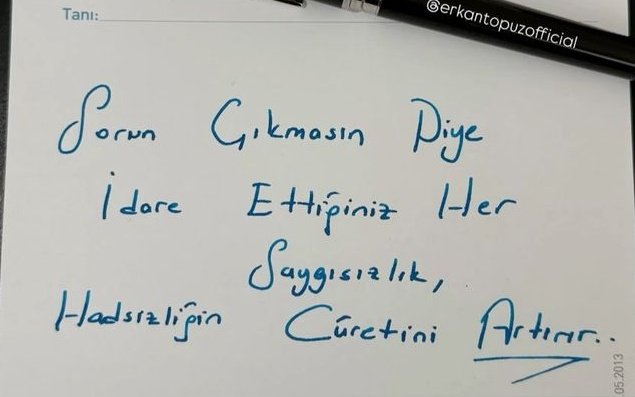 Tanı:
@erkantopuzofficial
Sorun Çıkmasın Diye
İdare Ettiğiniz Her
Saygısızlık,
Hadsizliğin Cüretini Artırır..
.05.2013